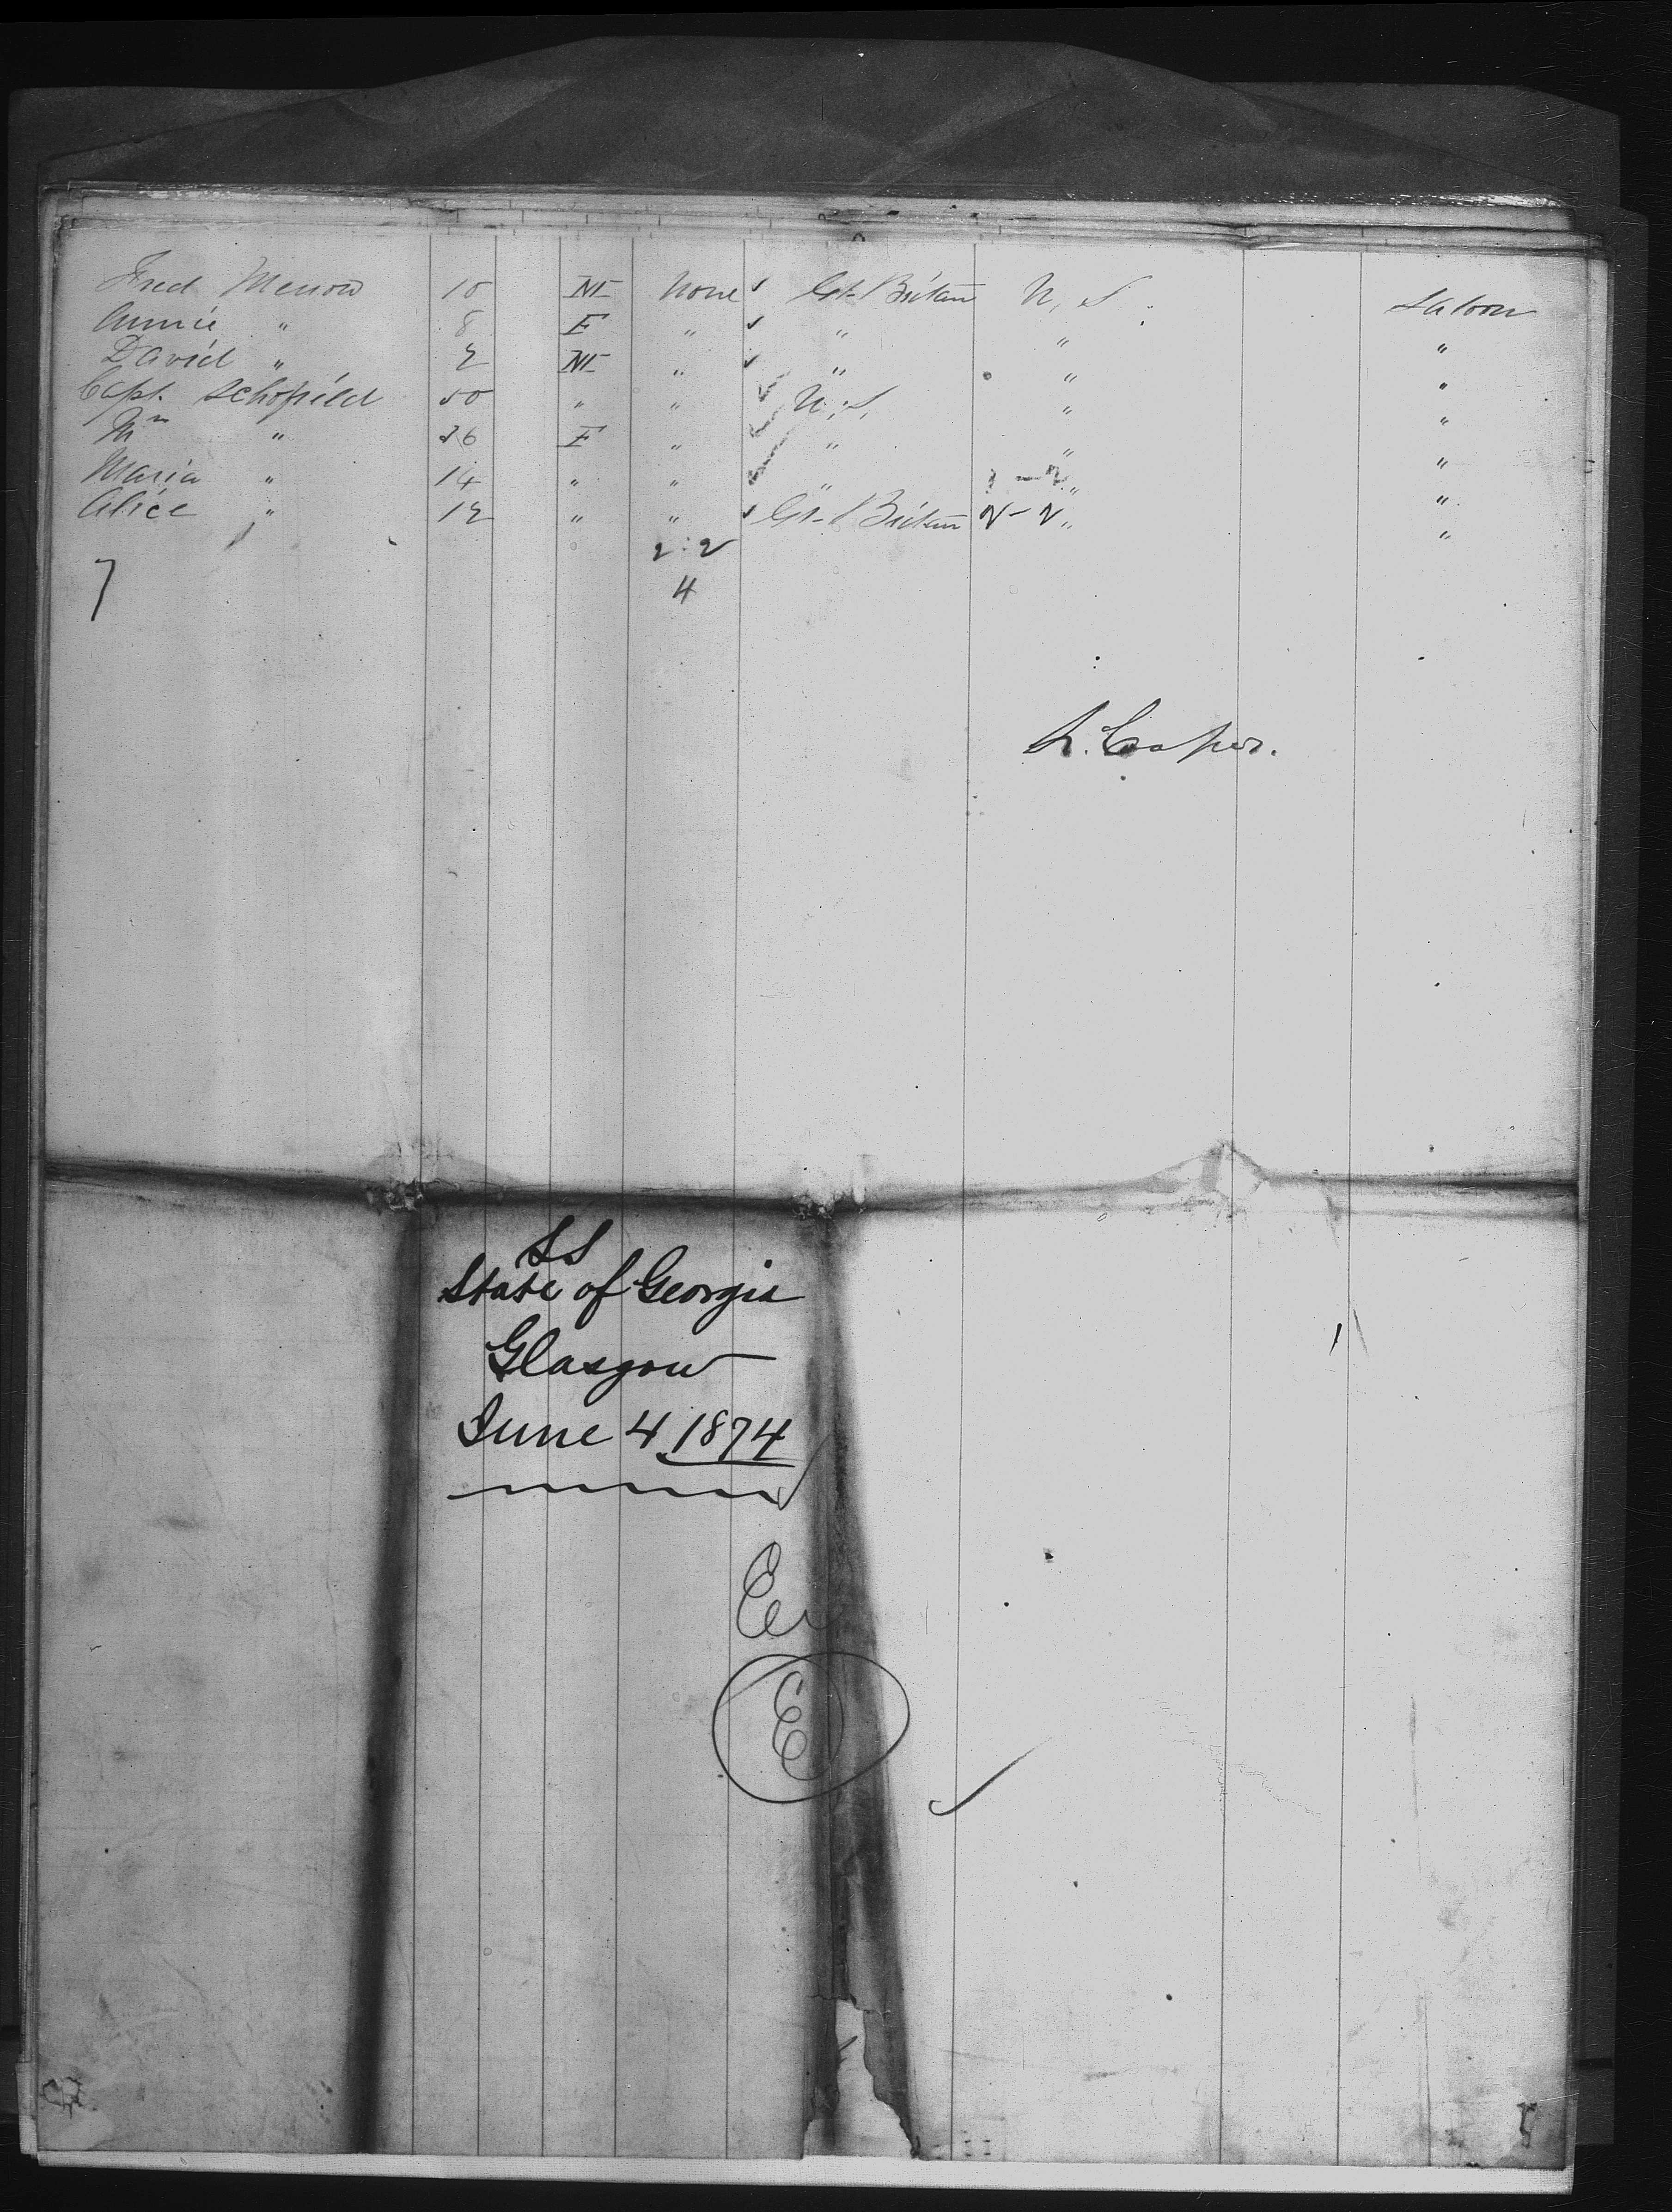 Fred Menow 10 M None ✓ Gt. Britain U, S. Saloon
Annie " 8 F " ✓ " " "
David " 2 M " ✓ " " "
Capt. Schofield 50 " " ✓ U. S, " "
Mrs " 36 F " ✓ " " "
Maria " 14 " " ✓ " " "
Alice " 12 " " ✓ Gt. Britain 2-2 " "
2:2
7 4
L. Cooper.
SS
State of Georgia
Glasgow
June 4 1874
E